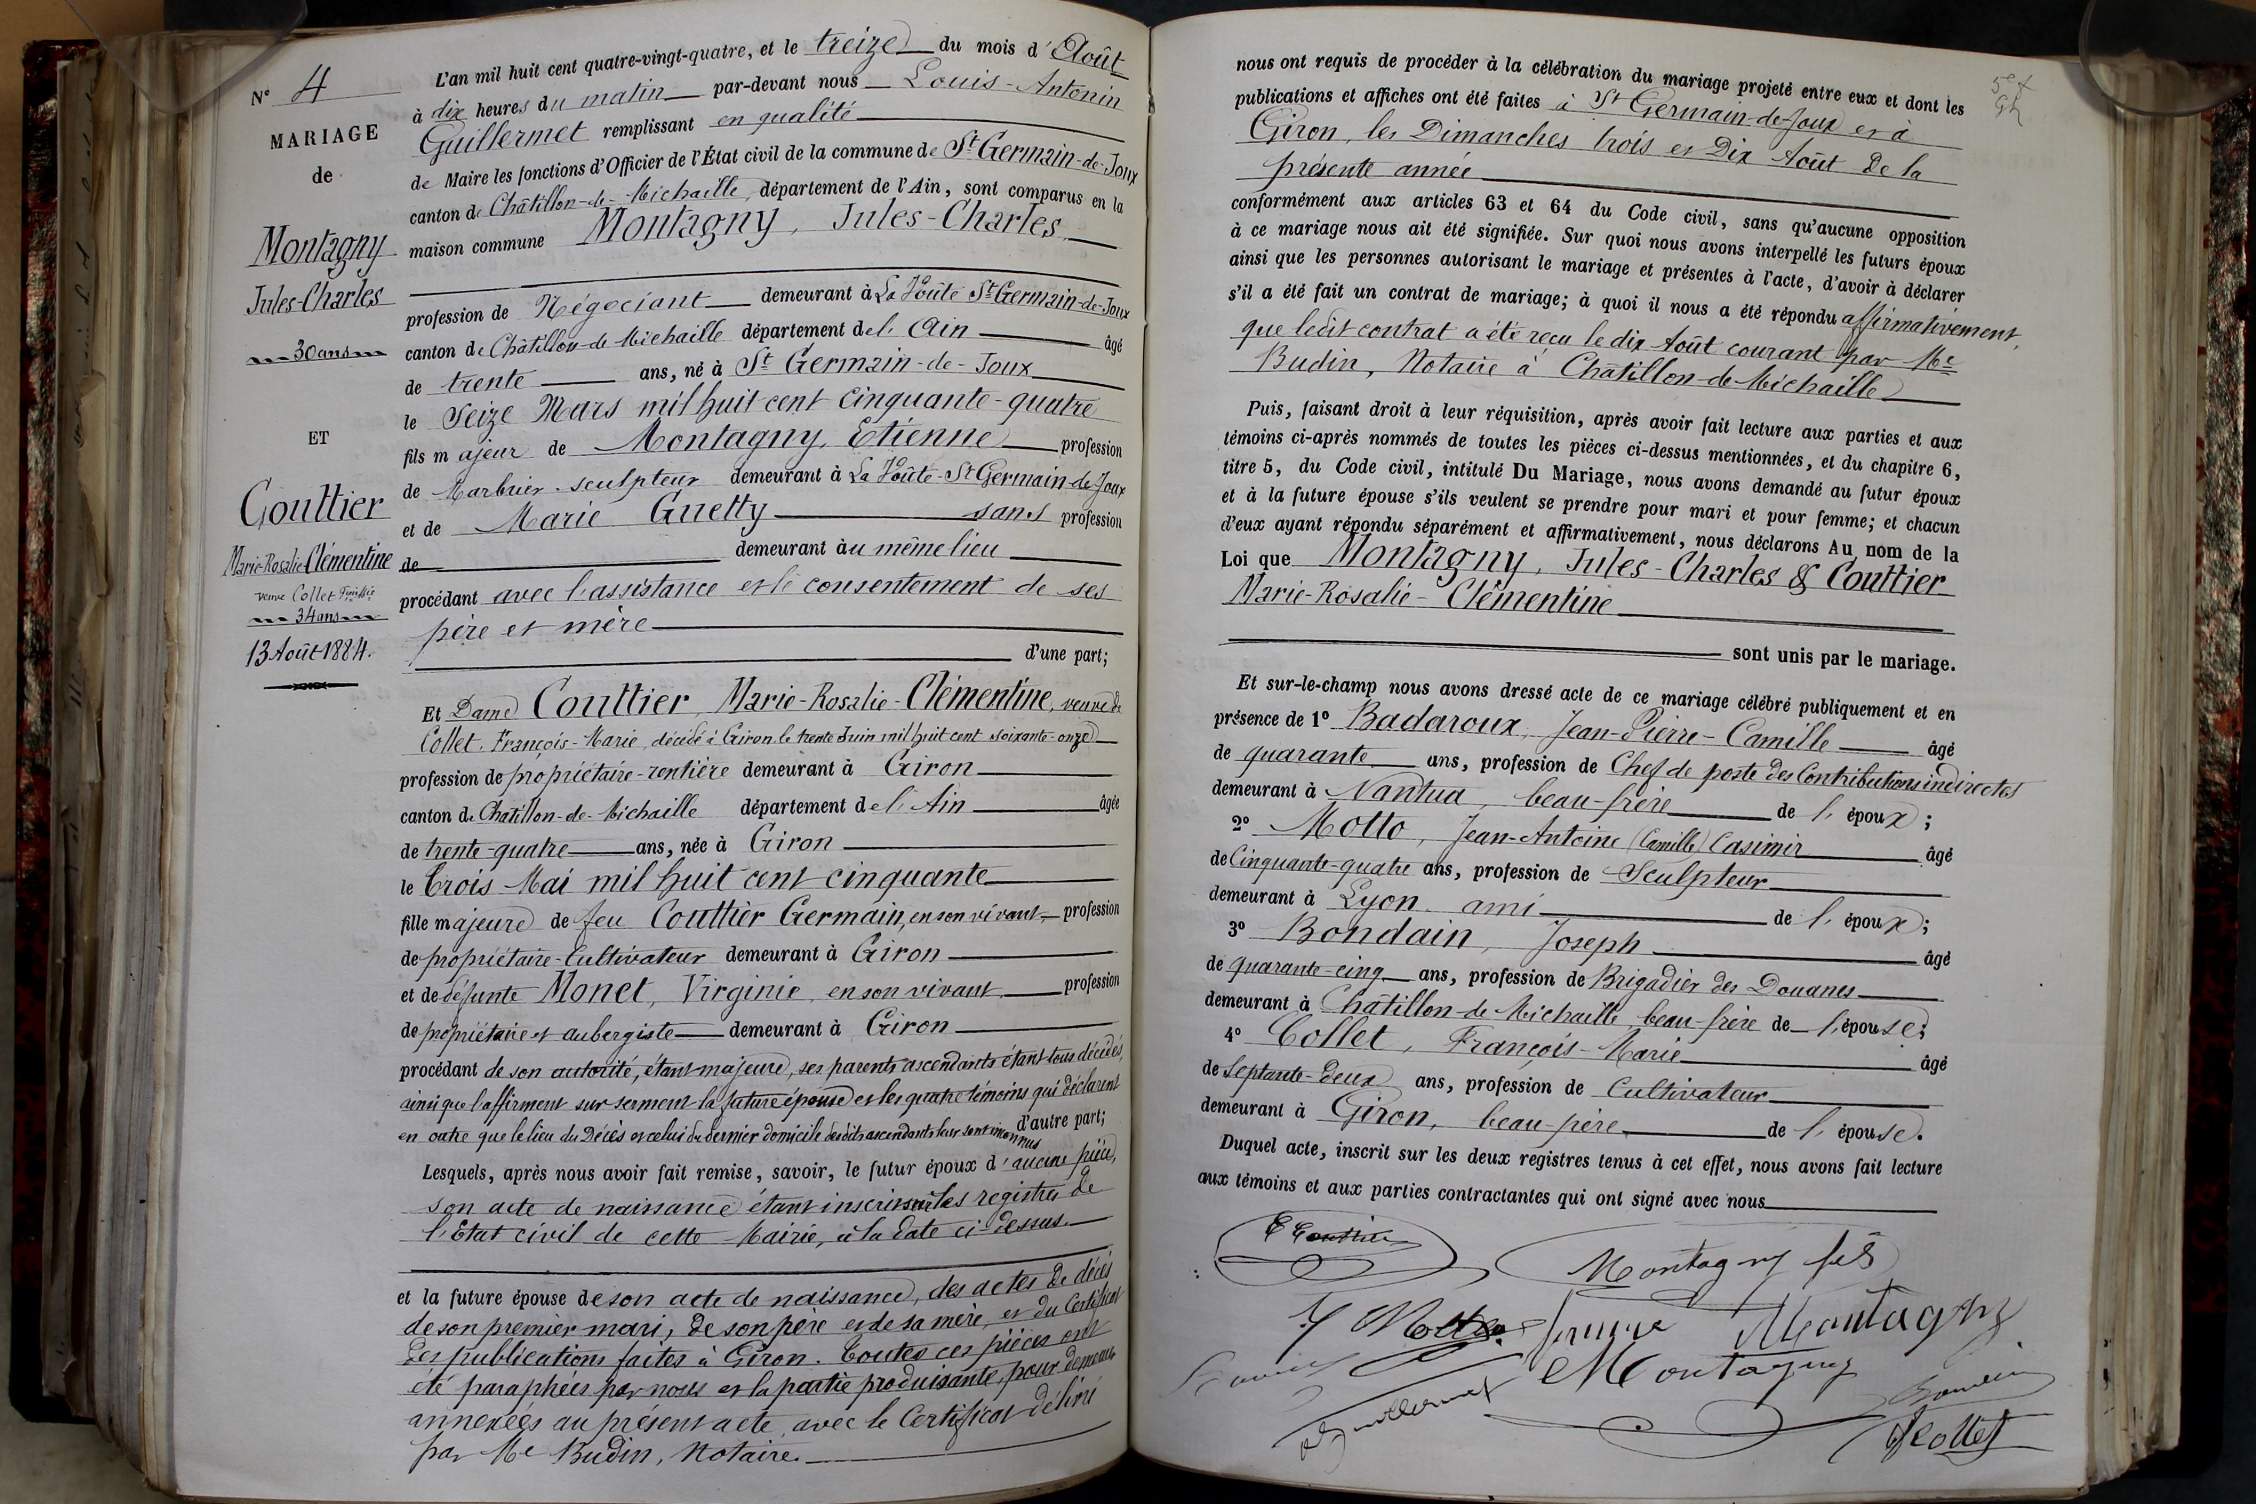 N° 4
MARIAGE
de
Montagny
Jules-Charles
30 ans
ET
Couttier
Marie-Rosalie-Clémentine
veuve Collet Fçois Mie
34 ans
13 Août 1884.
L'an mil huit cent quatre-vingt-quatre, et le treize du mois d'Août
à dix heures du matin par-devant nous Louis-Antonin
Guillermet remplissant en qualité
de Maire les fonctions d'Officier de l'État civil de la commune de St Germain-de-Joux
canton de Châtillon-de-Michaille, département de l'Ain, sont comparus en la
maison commune Montagny, Jules-Charles,
profession de Négociant demeurant à La Voûte St Germain-de-Joux
canton de Châtillon-de-Michaille département de l'Ain âgé
de trente ans, né à St Germain-de-Joux
le Seize Mars mil huit cent cinquante-quatre
fils majeur de Montagny, Etienne profession
de Marbrier-sculpteur demeurant à La Voûte-St Germain-de-Joux
et de Marie Guetty sans profession
de demeurant au même lieu
procédant avec l'assistance et le consentement de ses
père et mère
d'une part;
Et Dame Couttier, Marie-Rosalie-Clémentine, veuve de
Collet, François-Marie, décédé à Giron le trente Juin mil huit cent soixante-onze
profession de propriétaire-rentière demeurant à Giron
canton de Châtillon-de-Michaille département de l'Ain âgée
de trente-quatre ans, née à Giron
le trois Mai mil huit cent cinquante
fille majeure de feu Couttier Germain, en son vivant profession
de propriétaire-Cultivateur demeurant à Giron
et de défunte Monet, Virginie, en son vivant, profession
de propriétaire et aubergiste demeurant à Giron
procédant de son autorité, étant majeure, ses parents ascendants étant tous décédés,
ainsi que l'affirment sur serment la future épouse et les quatre témoins qui déclarent
en outre que le lieu du Décès et celui du dernier domicile desdits ascendants leur sont inconnus d'autre part;
Lesquels, après nous avoir fait remise, savoir, le futur époux d'aucune pièce,
son acte de naissance étant inscrit sur les registres de
l'Etat civil de cette Mairie, à la date ci-dessus.
et la future épouse de son acte de naissance, des actes de décès
de son premier mari, de son père et de sa mère, et du Certificat
des publications faites à Giron. Toutes ces pièces ont
été paraphées par nous et la partie produisante, pour demeurer
annexées au présent acte, avec le Certificat délivré
par Me Budin, Notaire.
nous ont requis de procéder à la célébration du mariage projeté entre eux et dont les
publications et affiches ont été faites à St Germain-de-Joux et à
Giron, les Dimanches trois et Dix Août de la
présente année
conformément aux articles 63 et 64 du Code civil, sans qu'aucune opposition
à ce mariage nous ait été signifiée. Sur quoi nous avons interpellé les futurs époux
ainsi que les personnes autorisant le mariage et présentes à l'acte, d'avoir à déclarer
s'il a été fait un contrat de mariage; à quoi il nous a été répondu affirmativement,
que ledit contrat a été reçu le dix Août courant par Me
Budin, Notaire à Châtillon-de-Michaille
Puis, faisant droit à leur réquisition, après avoir fait lecture aux parties et aux
témoins ci-après nommés de toutes les pièces ci-dessus mentionnées, et du chapitre 6,
titre 5, du Code civil, intitulé Du Mariage, nous avons demandé au futur époux
et à la future épouse s'ils veulent se prendre pour mari et pour femme; et chacun
d'eux ayant répondu séparément et affirmativement, nous déclarons Au nom de la
Loi que Montagny, Jules-Charles & Couttier
Marie-Rosalie-Clémentine
sont unis par le mariage.
Et sur-le-champ nous avons dressé acte de ce mariage célébré publiquement et en
présence de 1° Badaroux, Jean-Pierre-Camille âgé
de quarante ans, profession de Chef de poste des Contributions indirectes
demeurant à Nantua, beau-frère de l'époux;
2° Motto, Jean-Antoine (Camille) Casimir âgé
de Cinquante-quatre ans, profession de Sculpteur
demeurant à Lyon, ami de l'époux;
3° Bondain, Joseph âgé
de quarante-cinq ans, profession de Brigadier des Douanes
demeurant à Châtillon-de-Michaille beau-frère de l'épouse;
4° Collet, François-Marie âgé
de Septante-deux ans, profession de Cultivateur
demeurant à Giron, beau-père de l'épouse.
Duquel acte, inscrit sur les deux registres tenus à cet effet, nous avons fait lecture
aux témoins et aux parties contractantes qui ont signé avec nous
C Couttier
Montagny fils
Motto
femme Montagny
Montagny
Guillermet
Bondain
Collet